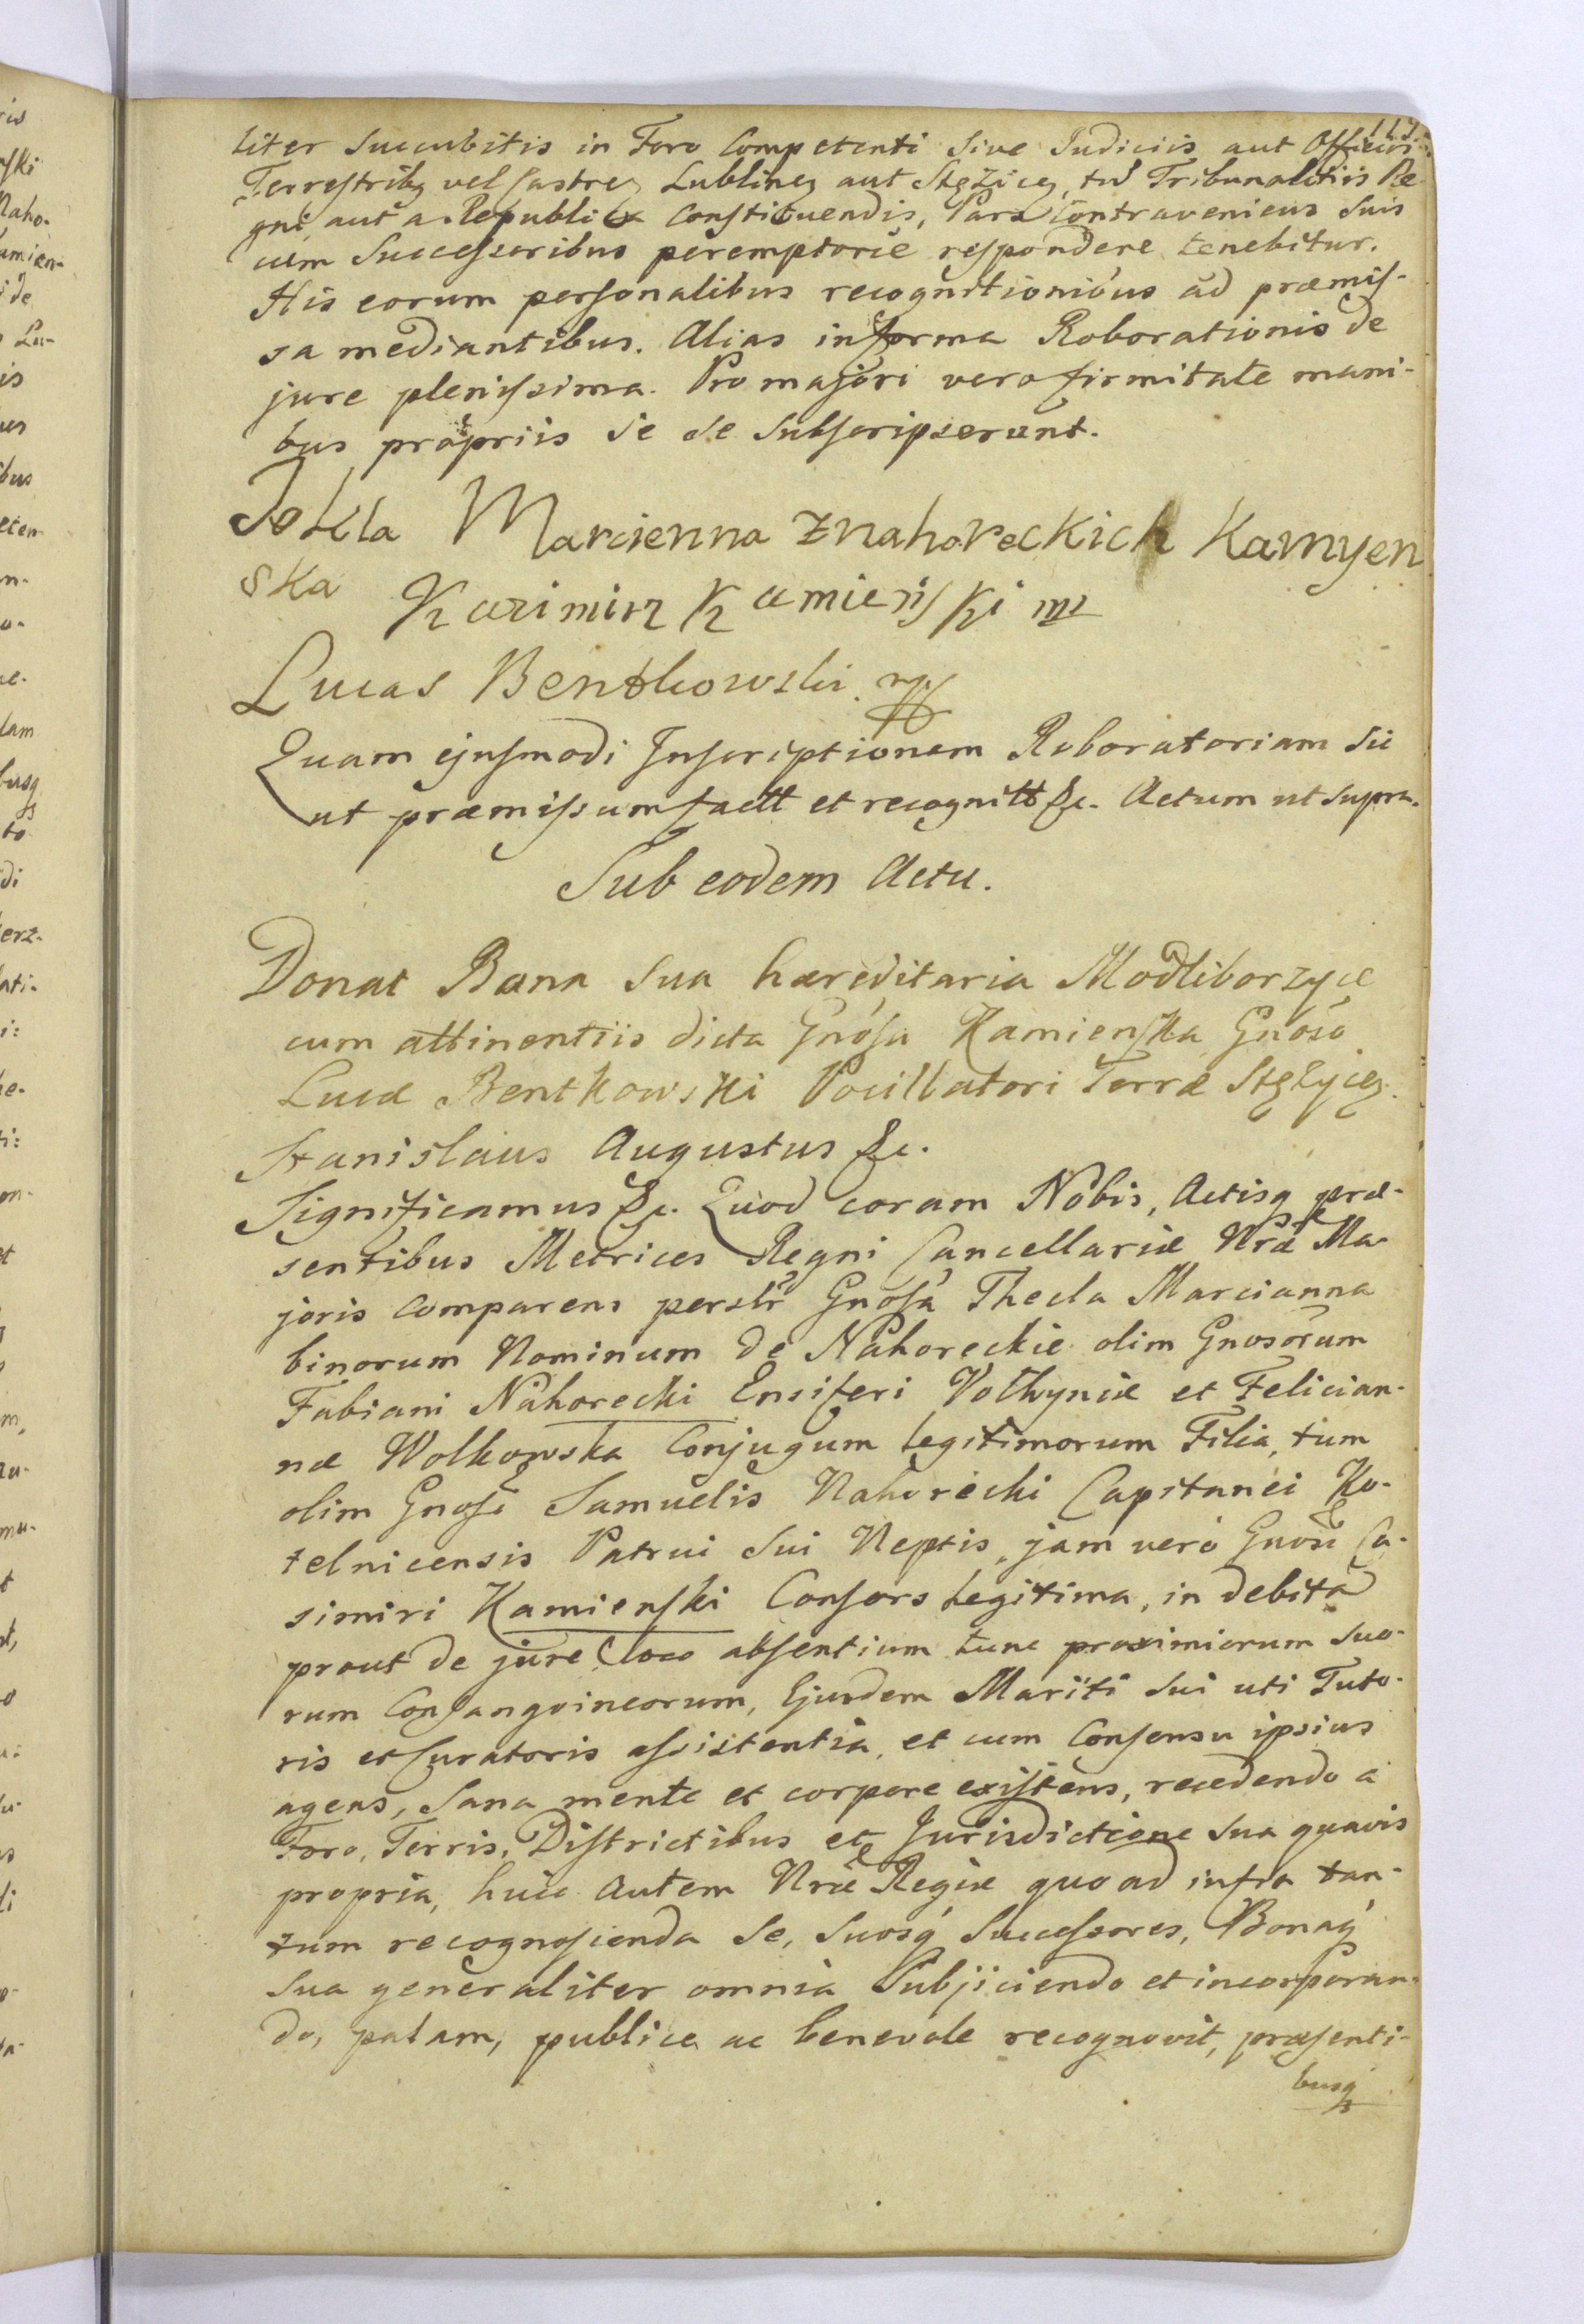 liter succubitis in Foro Competenti sive Judiciis aut Officiis
Terrestribq vel Castreq Lublineq aut Stęziceq, tū Tribunalitiis Re-
gni, aut a Republica Constituendis, Pars Contraveniens suis
cum Successoribus peremptorie respondere tenebitur.
His eorum personalibus recognitionibus ad præmis-
sa mediantibus. Alias in forma Roborationis de
jure plenissima. Pro majori vero firmitate mani-
bus propriis se se subscripserunt.
Tekla Marcienna z nahoreckich Kamyen
ska Kazimirz Kamieński mp
Lucas Bentkowski mp
Quam ejusmodi Inscriptionem Roboratoriam sic
ut præmissum factt et recognitt &c. Actum ut supra.
Sub eodem Actu.
Donat Bona sua hæreditaria Modliborzyce
cum attinentiis dicta Gnosa Kamienska Gnoso
Lucæ Bentkowski Pocillatori Terræ Stężyceq.
Stanislaus Augustus &c.
Significamus &c. Quod coram Nobis, Actisq præ-
sentibus Metrices Regni Cancellariæ Nræ Ma-
joris comparens perslr Gnosa Thecla Marcianna
binorum Nominum de Nahoreckie olim Gnosorum
Fabiani Nahorecki Ensiferi Volhyniæ et Felician-
næ Wolkowska Conjugum legitimorum Filia, tum
olim Gnosi Samuelis Nahorecki Capitanei Ko-
telnicensis Patrui sui Neptis, jam vero Gnosi Ca-
simiri Kamienski Consors legitima, in debita
prout de jure loco absentium tunc proximiorum suo-
rum Consangvineorum, Ejusdem Mariti sui uti Tuto-
ris et Curatoris assistentia, et cum Consensu ipsius
agens, sana mente et corpore existens, recedendo a
Foro, Terris, Districtibus et Jurisdictione sua quavis
propria, huic autem Nræ Regiæ quo ad infra tan-
tum recognoscenda se, suosq Successores, Bonaq
sua generaliter omnia Subjiciendo et incorporan-
do, palam, publice ac benevole recognovit, præsenti-
busq